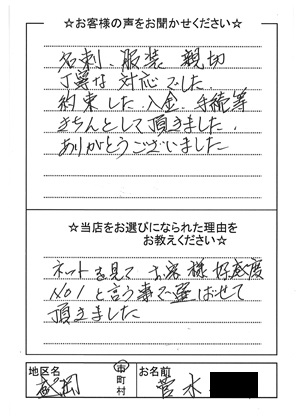 ☆お客様の声をお聞かせください☆
名刺、服装 親切
丁寧な 対応でした
約束した 入金、手続等
きちんとして頂きました。
ありがとうございました
☆当店をお選びになられた理由を
お教えください☆
ネットを見て お客様好感度
No1と言う事で選ばせて
頂きました
地区名
盛岡
市
町
村
お名前
菅水